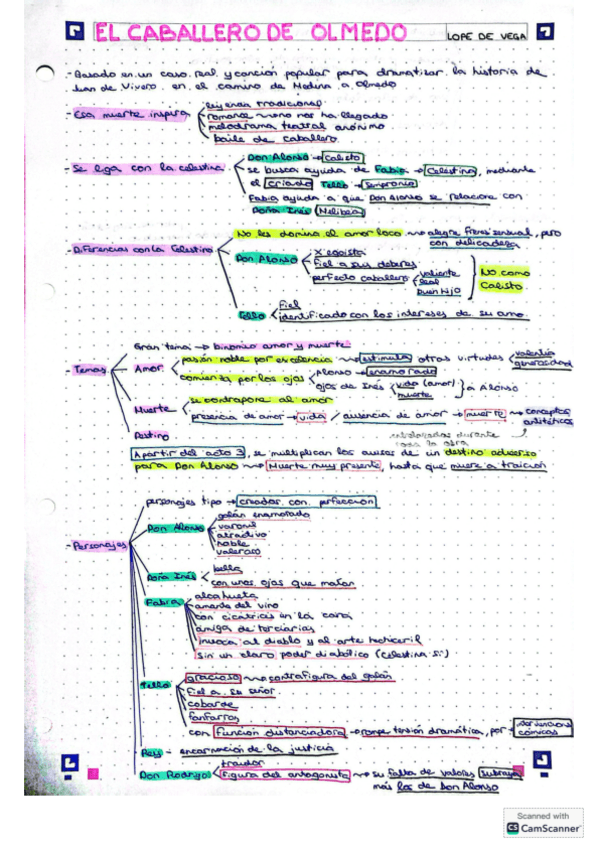 EL CABALLERO DE OLMEDO LOPE DE VEGA
- Basado en un caso real y canción popular para dramatizar la historia de
Juan de Vivero en el camino de Medina a Olmedo
leyenda tradicional
- Esa muerte inspira romance no nos ha llegado
melodrama teatral anónimo
baile de caballero
Don Alonso → Calisto
- Se liga con la celestina se busca ayuda de Fabia → Celestina, mediante
el criado Tello → Sempronio
Fabia ayuda a que Don Alonso se relacione con
Doña Inés (Melibea)
No les domina el amor loco alegre frenesí sensual, pero
con delicadeza
- Diferencias con la Celestina
X egoista
Don Alonso fiel a sus deberes
perfecto caballero valiente
leal
buen hijo
No como
Calisto
Fiel
Tello identificado con los intereses de su amo
Gran tema → binomio amor y muerte
- Temas Amor pasión noble por excelencia estimula otras virtudes valentía
generosidad
comienza por los ojos Alonso → enamorado
ojos de Inés vida (amor) a Alonso
muerte
Muerte se contrapone al amor
presencia de amor → vida / ausencia de amor → muerte conceptos
antitéticos
Destino entrelazados durante
toda la obra
A partir del acto 3, se multiplican los avisos de un destino adverso
para Don Alonso Muerte muy presente, hasta que muere a traición
personajes tipo → creados con perfección
- Personajes
galán enamorado
Don Alonso varonil
atractivo
noble
valeroso
Doña Inés bella
con unos ojos que matan
Fabia alcahueta
amante del vino
con cicatrices en la cara
amiga de terciarias
invoca al diablo y al arte hechiceril
sin un claro poder diabólico (Celestina sí)
Tello gracioso contrafigura del galán
fiel a su señor
cobarde
fanfarrón
con función distanciadora → rompe tensión dramática, por
intervenciones
cómicas
Rey = encarnación de la justicia
traidor
Don Rodrigo figura del antagonista su falta de valores subraya
más los de Don Alonso
Scanned with
CS CamScanner